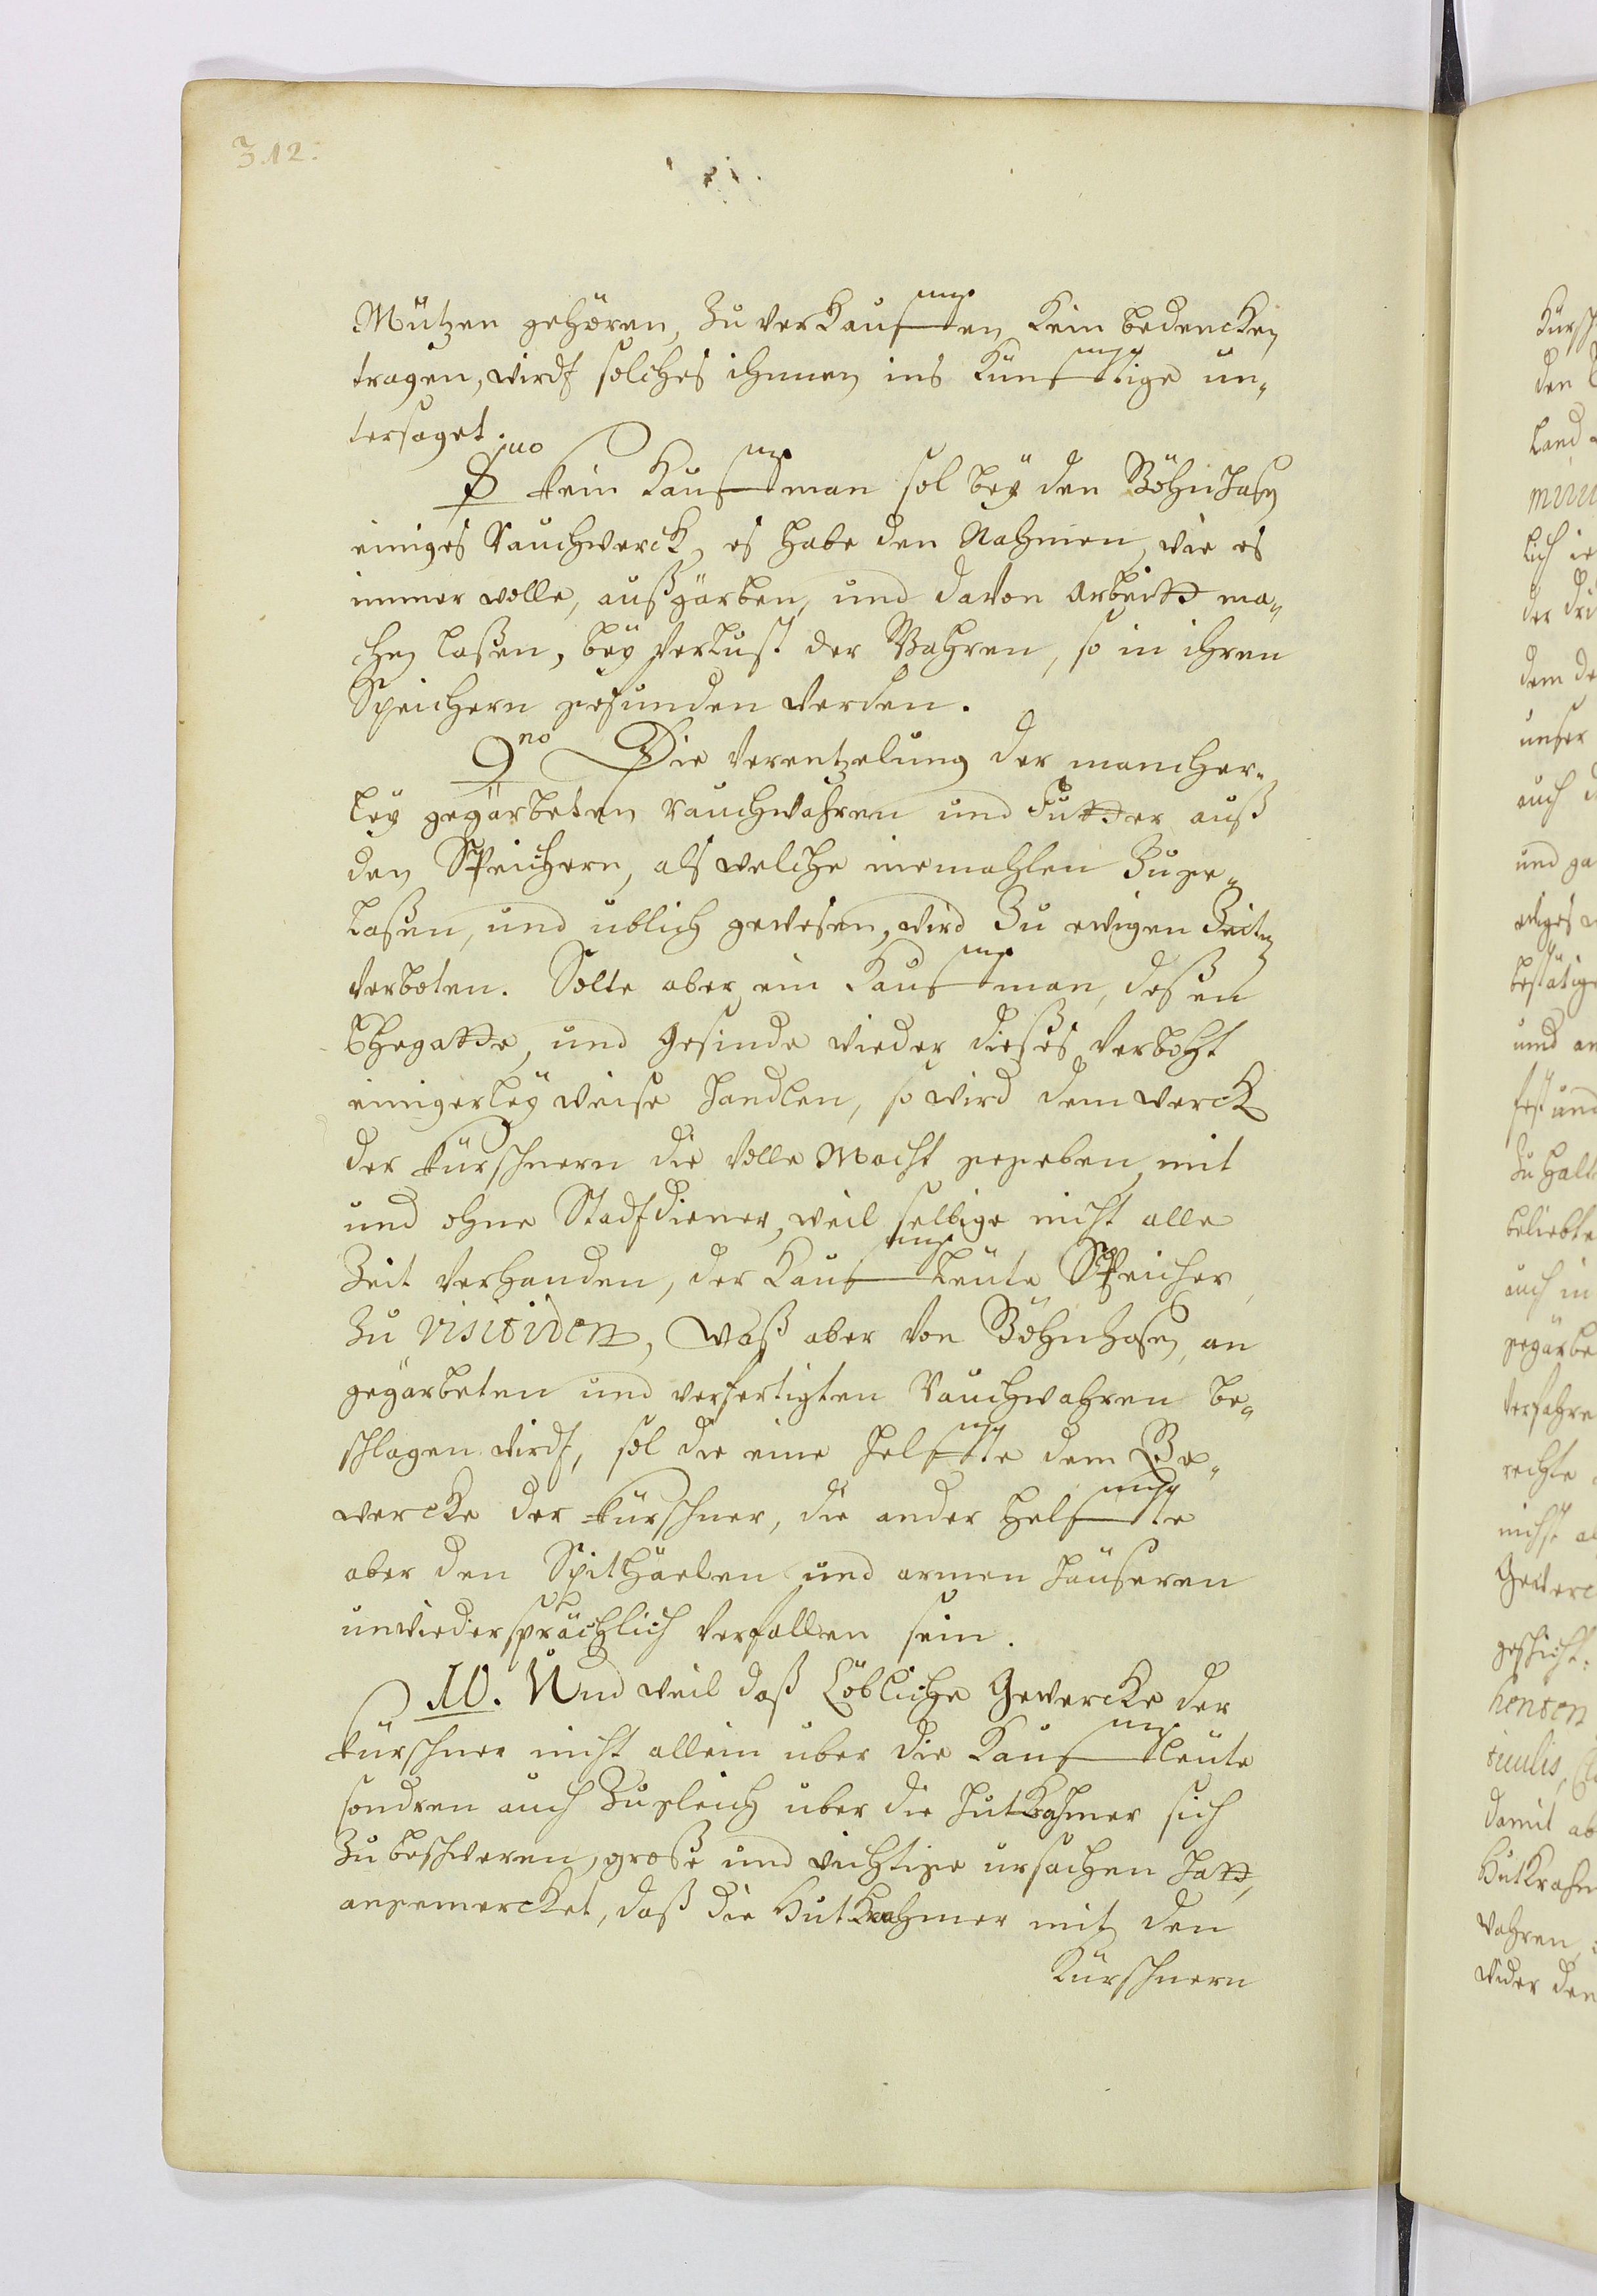 312.
Mützen gehören, zu verkauffen kein bedencken
tragen, wirdt solches ihnnen ins künfftige un-
tersaget.
8vo Kein Kauffman sol beÿ den Böhnhasen
einiges Rauchwerck, es habe den Nahmen, wie es
immer wolle, außgärben, und davon Arbeitt ma-
chen laßen, beÿ Verlust der Wahren, so in ihren
Speichern gefunden werden.
9no Die Verentzelung der mancher-
leÿ gegärbeten Rauchwahren und Futter auß
den Speichern, als welche niemahlen zuge-
laßen, und üblich gewesen, wird zu ewigen Zeiten
verboten. Solte aber ein Kauffman, deßen
Ehegatte, und Gesinde wieder dießes verboht
einigerleÿ weise handlen, so wird dem werck
der Kürschnern die volle Macht gegeben mit
und ohne Stadtdiener, weil selbige nicht alle
Zeit verhanden, der Kauffleute Speicher
zu visitiren, Waß aber von Böhnhasen, an
gegärbeten und verfertigten Rauchwahren be-
schlagen wirdt, sol die eine helffte dem Ge-
wercke der Kürschner, die ander helffte
aber den Spithäelen und armen häuseren
unwiedersprächlich verfallen sein.
10. Und weil daß Löbliche Gewercke der
Kürschner nicht allein über die Kauffleute
sondren auch zugleich über die Hutkrahmer sich
zu beschweren, große und wichtige ursachen hatt,
angemercket, daß die Hutkrahmer mit den
Kürschnern